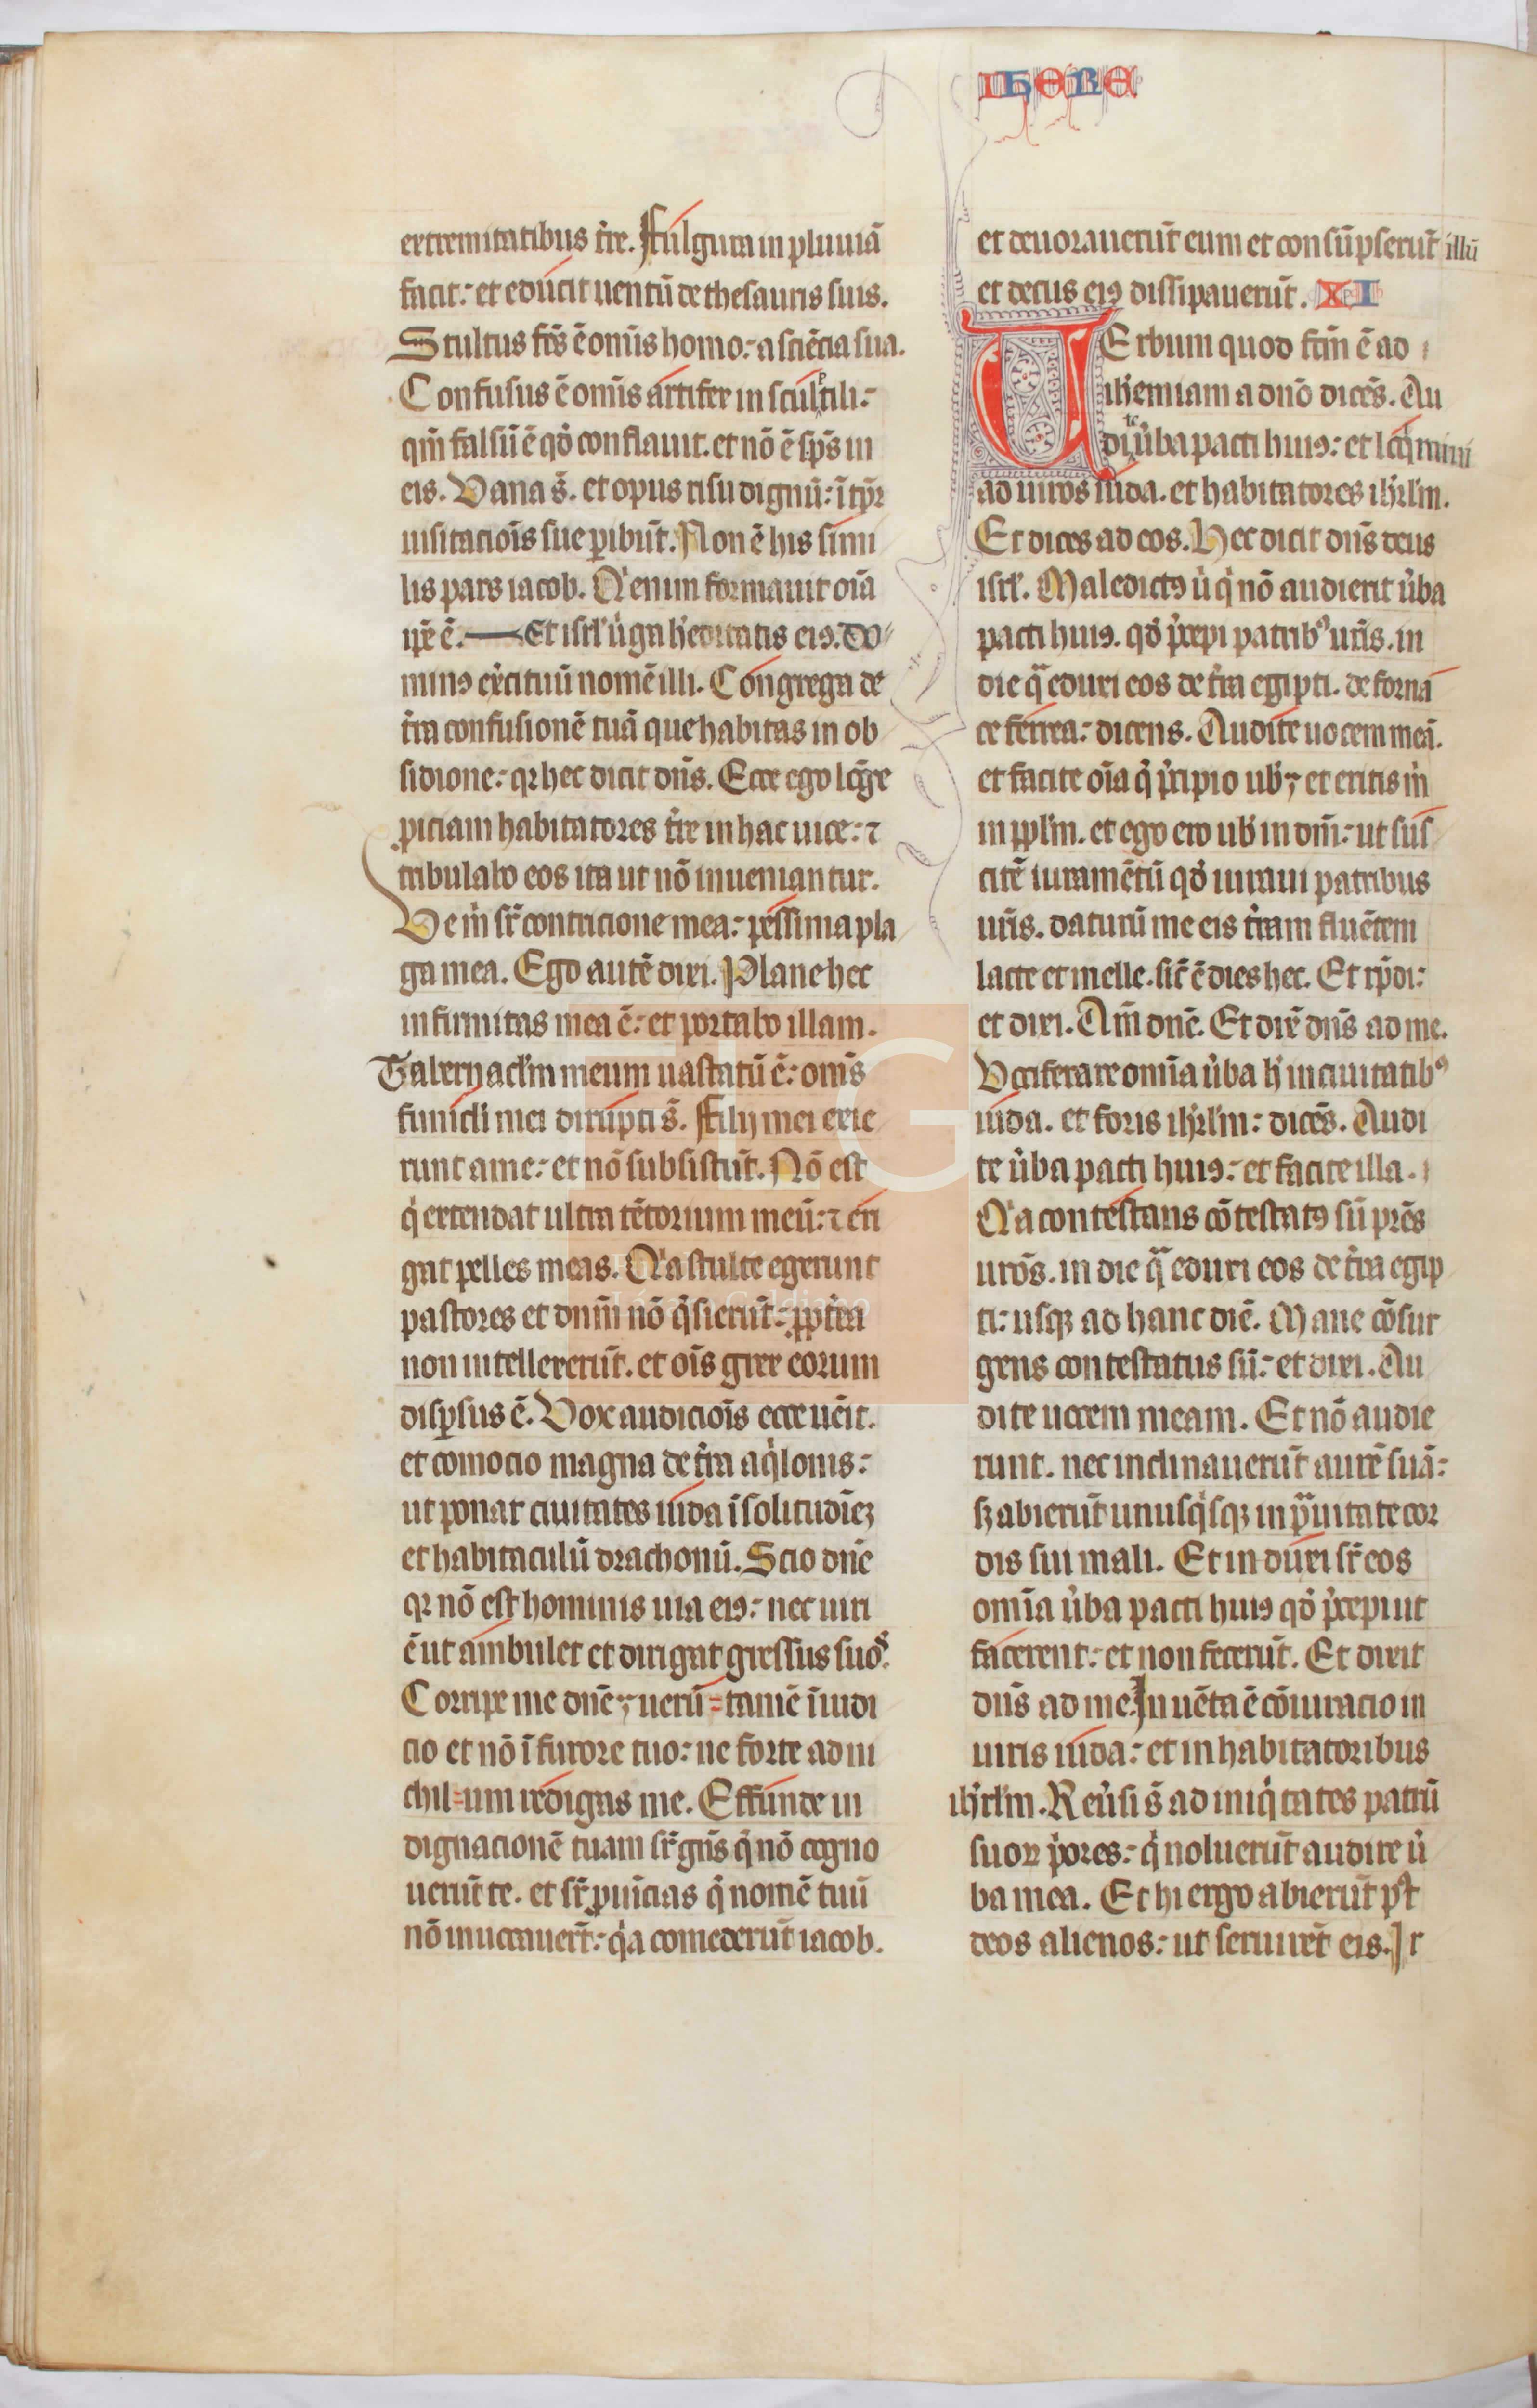 IHERE
extremitatibus t̄re. Fulgura in pluuiā
facit: et educit uentū de thesauris suis.
Stultus fc̄s ē om̄is homo: a sciēcia sua.
Confusus ē om̄is artifex in sculptili:
qm̄ falsū ē qd̓ conflauit. et nō ē sp̄s in
eis. Vana s̄. et opus risu dignū: ī tp̄r
uisitacioīs sue ꝑibūt. Non ē his simi
lis pars iacob. Qͥ enim formauit oīa
ip̄e ē. Et isrł uͥga h̓editatis eiꝰ. do
minꝰ ex̓cituū nomē illi. Congrega de
t̄ra confusionē tuā que habitas in ob
sidione: qꝛ hec dicit dn̄s. Ecce ego lōge
ꝓiciam habitatores t̄re in hac uice: ⁊
tribulabo eos ita ut nō inueniantur.
Ve m̓ sr̄ contricione mea: pessima pla
ga mea. Ego autē dixi. Plane hec
infirmitas mea ē: et portabo illam.
Tabernacl̓m meum uastatū ē: om̄s
funicl̓i mei dirupti s̄. Filij mei exie
runt a me: et nō subsistūt. Nō est
qͥ extendat ultra tētorium meū: ⁊ eri
gat pelles meas. Qͥa stulte egerunt
pastores et dnm̄ nō qͥsierūt: ꝓpt̓ea
non intellexerūt. et oīs grex eorum
disꝑsus ē. Vox audicioīs ecce uēit.
et comocio magna de t̓ra aqͥlonis:
ut ponat ciuitates iuda ī solitudīeꝫ
et habitaculū drachonū. Scio dn̄e
qꝛ nō est hominis uia eiꝰ: nec uiri
ē ut ambulet et dirigat gressus suos.
Corripe me dn̄e; uerū=tamē ī iudi
cio et nō ī furore tuo: ne forte ad ni
chil=um redigas me. Effunde in
dignacionē tuam sr̄ gn̄s q̄ nō cogno
uerūt te. et sr̄ ꝓuīcias q̄ nomē tuū
nō inuocauer̄t: qͥa comederūt iacob.
et deuorauerūt eum et consūpserūt illū
et decus eiꝰ dissipauerūt. XI
Verbum quod fc̄m ē ad
ih̓emiam a dn̄o dicēs. Au
dite ūba pacti huiꝰ: et loqͥmini
ad uiros iuda. et habitatores ih̓rl̓m.
Et dices ad eos. Hec dicit dn̄s deus
isrł. Maledictꝰ ū qͥ nō audierit ūba
pacti huiꝰ. qd̓ p̓cepi patribꝰ ur̄is. in
die qͣ eduxi eos de t̓ra egipti. de forna
ce ferrea: dicens. Audite uocem meā.
et facite oīa q̄ p̓cipio uob̓; et eritis m̓
in ppl̓m. et ego ero uob̓ in dm̄: ut sus
citē iuramētū qd̓ iuraui patribus
ur̄is. daturū me eis t̓ram fluētem
lacte et melle. sic̄ ē dies hec. Et rn̄di:
et dixi. Am̄ dn̄e. Et dix̄ dn̄s ad me.
Vociferare omīa ūba h̓ in ciuitatibꝰ
iuda. et foris ih̓rl̓m: dicēs. Audi
te ūba pacti huiꝰ: et facite illa.
Qͥa contestans cōtestatꝰ sū pr̄es
uros̄. in die qͣ eduxi eos de t̓ra egip
ti: usqꝫ ad hanc diē. Mane cōsur
gens contestatus sū: et dixi. Au
dite uocem meam. Et nō audie
runt. nec inclinauerūt aurē suā:
sꝫ abierūt unusqͥsqꝫ in pͣuitate cor
dis sui mali. Et induxi sr̄ eos
omīa ūba pacti huiꝰ qd̓ p̓cepi ut
facerent: et non fecerūt. Et dixit
dn̄s ad me. Inuēta ē cōiuracio in
uiris iuda: et in habitatoribus
ih̓rl̓m. Reūsi s̄ ad iniqͥtates patrū
suoꝝ pͥores: qͥ noluerūt audire ū
ba mea. Et hi ergo abierūt pꝰt
deos alienos: ut seruirēt eis. Ir